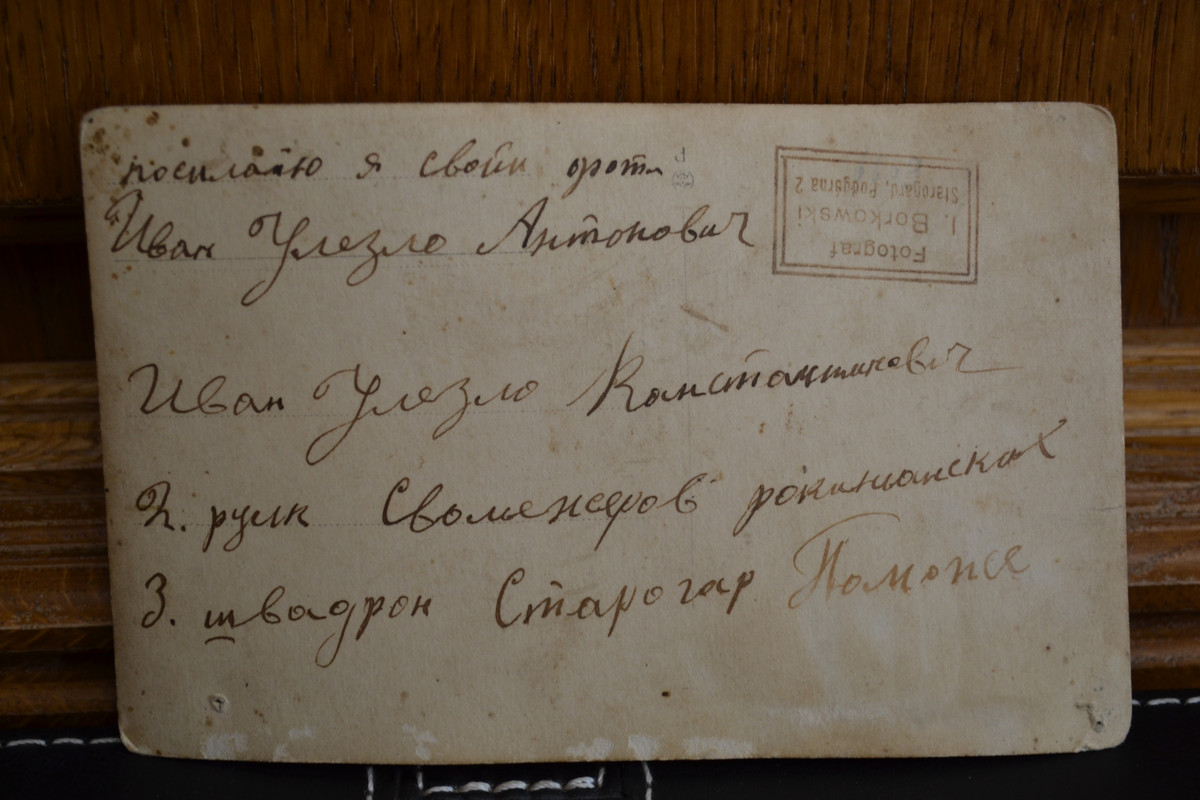 посилаю я свои фоти
Иван Улезло Антонович
Fotograf
I. Borkowski
Starogard, Podgórna 2
Иван Улезло Константинович
2. рулк Сволежеров рокитнянских
3. швадрон Старогар Поможе